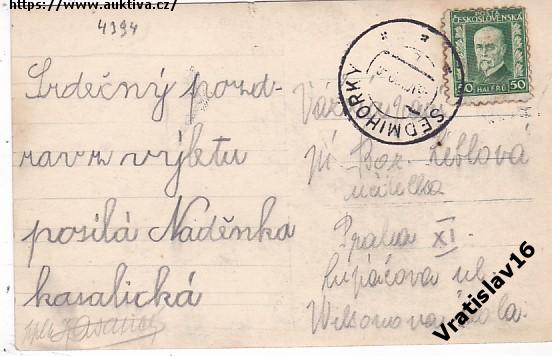 https://www.auktiva.cz/
4394
POŠTA
ČESKOSLOVENSKÁ
50 HALÉŘŮ 50
SEDMIHORKY
Srdečný pozd-
rav z výletu
posílá Naděnka
kasalická
Váž. paní
Bož.
učitelka
Praha XI.
Lupáčova ul.
Wilsonova škola.
Vratislav16